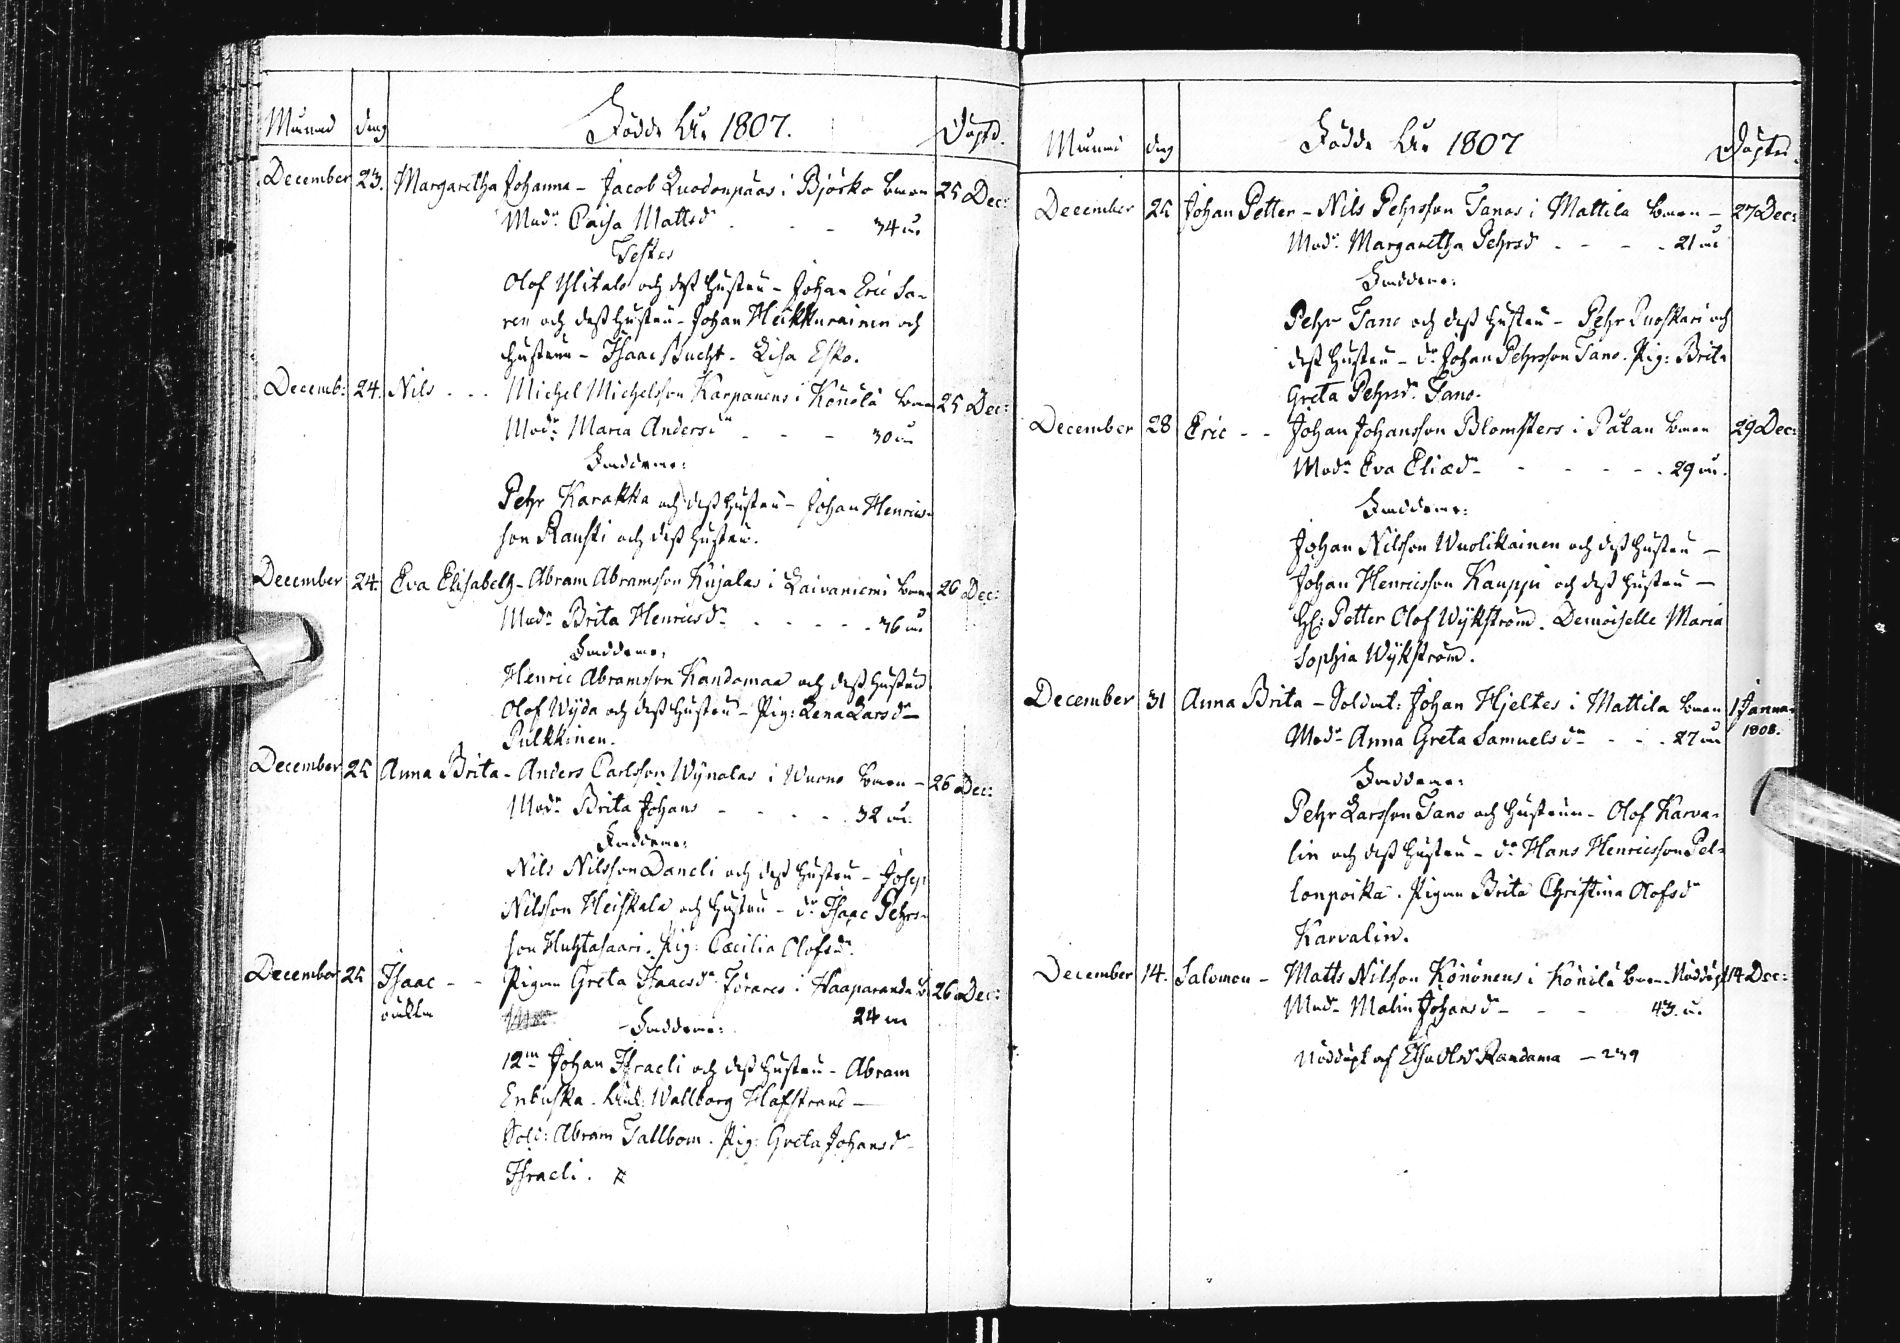 Månad dag Födde År 1807. Döpte.
December 23. Margaretha Johanna - Jacob Luodonpääs i Björkö barn 25 Dec:
Modr: Caisa Mattsdr - - 34 år
Testes
Olof Ylitalo och dess hustru - Johan Eric Sa-
ren och dess hustru - Johan Heikkurainen och
hustrun - Isaac Bucht. Lisa Esko.
Decemb: 24. Nils - - Michel Michelsson Karpanens i Könölä barn 25 Dec:
Modr: Maria Andersdr - - - 30 år
Faddrar:
Pehr Karakka och dess hustru - Johan Henrics-
son Rauski och dess hustru.
December 24. Eva Elisabeth - Abram Abramsson Kujalas i Laivaniemi barn 26 Dec:
Modr Brita Henricsdr - - - - - 36 år
Faddrar:
Henric Abramsson Kandamaa och dess hustru
Olof Wyda och dess hustru - Pig: Lena Larsdr
Pulkkinen.
December 25 Anna Brita - Anders Carlsson Wynalas i Wuono barn - 26 Dec:
Modr Brita Johans - - - - 32 år.
Faddrar:
Nils Nilsson Daneli och dess hustru - Josep
Nilsson Heiskala och hustru - dr Isaac Pehrs-
son Huhtasaari. Pig: Cæcilia Olofsdr.
December 25 Isaac - - Pigan Greta Isaacsdr Förares i Haaparanda b. 26 Dec:
oäkta Faddrar: 24 år
12m Johan Israeli och dess hustru - Abram
Enbuska. Wallborg Hafstrand -
Sold: Abram Tallbom. Pig: Greta Johansdr
Israeli.
Månad dag Födde År 1807 Döpter.
December 25 Johan Petter - Nils Pehrsson Tanos i Mattila barn - 27 Dec:
Modr Margaretha Pehrsd - - - - 21 år
Faddrar:
Pehr Tano och dess hustru - Pehr Puoskari och
dess hustru - dr Johan Pehrsson Tano. Pig: Brita
Greta Pehrsdr Tano.
December 28 Eric - - Johan Johansson Blomsters i Påtan barn 29 Dec:
Modr Eva Eliædr - - - - - - 29 år.
Faddrar:
Johan Nilsson Wuolikainen och dess hustru -
Johan Henricsson Kauppi och dess hustru -
Petter Olof Wykström. Demoiselle Maria
Sophia Wykström.
December 31 Anna Brita - Soldat: Johan Hjeltes i Mattila barn 1 Janua-
Modr Anna Greta Samuelsdr - - - 27 år 1808.
Faddrar:
Pehr Larsson Tano och hustrun - Olof Karva-
lin och dess hustru - dr Hans Henricsson Pel-
lonpoika. Pigan Brita Christina Olofsdr
Karvalin.
December 14. Salomon - Matts Nilsson Könönens i Könölä barn Nöddöpt 14 Dec:
Modr Malin Johansdr - - - 43 år.
Nöddöpt af Elsa Olsdr Randama - 239